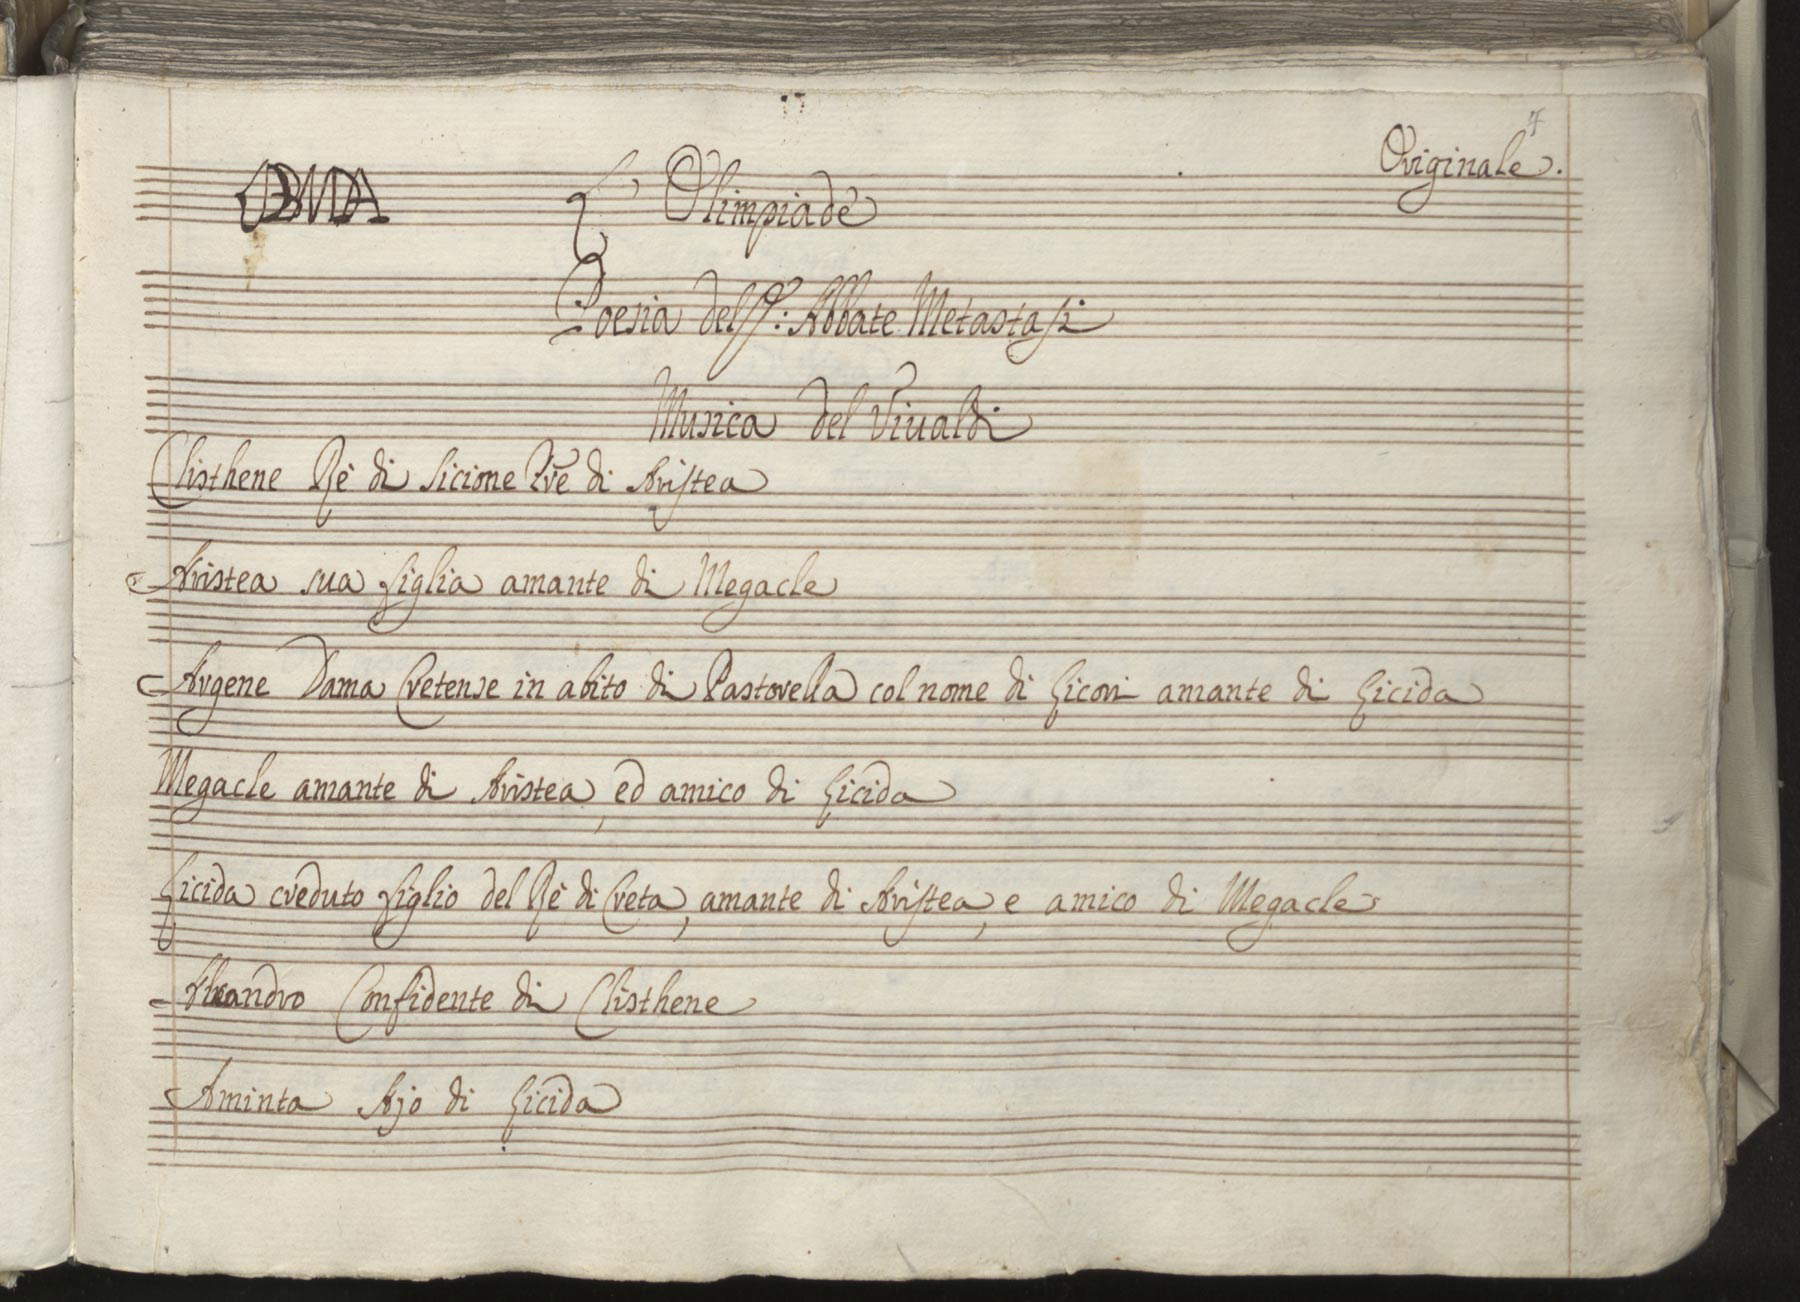 4
Originale.
L'Olimpiade
Poesia del Sr: Abbate Metastasi
Musica del Viualdi
Clisthene Rè di Sicione Pre di Aristea
Aristea sua figlia amante di Megacle
Argene Dama Cretense in abito di Pastorella col nome di Licori amante di Licida
Megacle amante di Aristea, ed amico di Licida
Licida creduto figlio del Rè di Creta, amante di Aristea, e amico di Megacle
Alcandro Confidente di Clisthene
Aminta Ajo di Licida